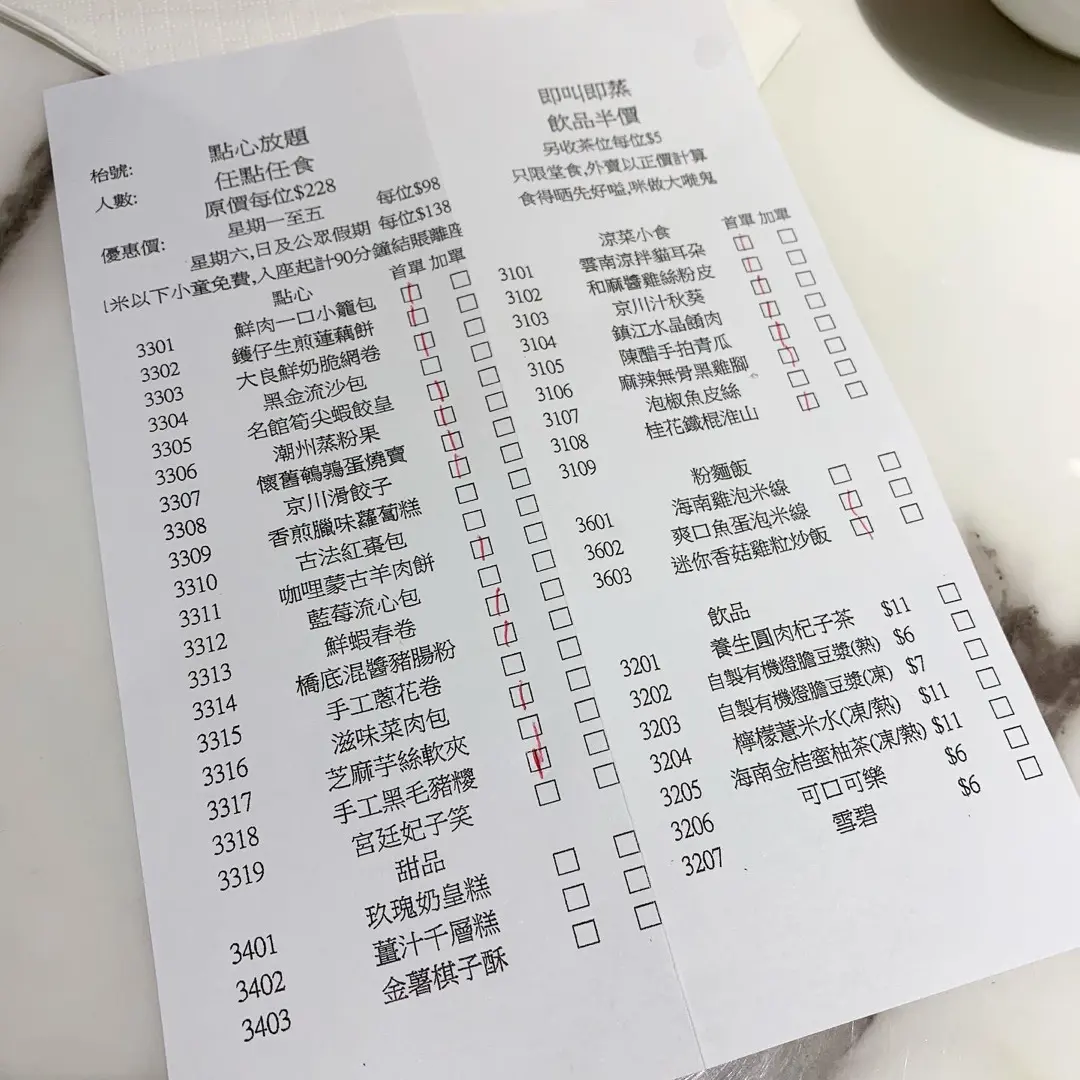 點心放題
枱號: 任點任食
人數: 原價每位$228
星期一至五 每位$98
優惠價: 星期六,日及公眾假期 每位$138
1米以下小童免費,入座起計90分鐘結賬離座
點心 首單 加單
3301 鮮肉一口小籠包
3302 鑊仔生煎蓮藕餅
3303 大良鮮奶脆網卷
3304 黑金流沙包
3305 名館筍尖蝦餃皇
3306 潮州蒸粉果
3307 懷舊鵪鶉蛋燒賣
3308 京川滑餃子
3309 香煎臘味蘿蔔糕
3310 古法紅棗包
3311 咖哩蒙古羊肉餅
3312 藍莓流心包
3313 鮮蝦春卷
3314 橋底混醬豬腸粉
3315 手工蔥花卷
3316 滋味菜肉包
3317 芝麻芋絲軟夾
3318 手工黑毛豬糭
3319 宮廷妃子笑
甜品
3401 玫瑰奶皇糕
3402 薑汁千層糕
3403 金薯棋子酥
即叫即蒸
飲品半價
另收茶位每位$5
只限堂食,外賣以正價計算
食得晒先好嗌,咪做大嘥鬼
涼菜小食 首單 加單
3101 雲南涼拌貓耳朶
3102 和麻醬雞絲粉皮
3103 京川汁秋葵
3104 鎮江水晶餚肉
3105 陳醋手拍青瓜
3106 麻辣無骨黑雞腳
3107 泡椒魚皮絲
3108 桂花鐵棍淮山
3109
粉麵飯
3601 海南雞泡米線
3602 爽口魚蛋泡米線
3603 迷你香菇雞粒炒飯
飲品
3201 養生圓肉杞子茶 $11
3202 自製有機燈膽豆漿(熱) $6
3203 自製有機燈膽豆漿(凍) $7
3204 檸檬薏米水(凍/熱) $11
3205 海南金桔蜜柚茶(凍/熱) $11
3206 可口可樂 $6
3207 雪碧 $6